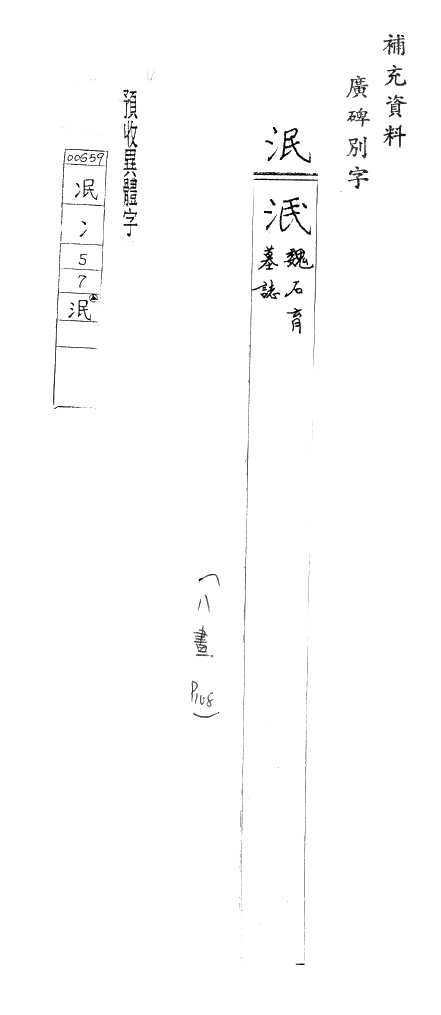 補充資料
廣碑別字
泯
泯
魏石育
墓誌
(八畫
P108)
預收異體字
00659
冺
冫
5
7
泯